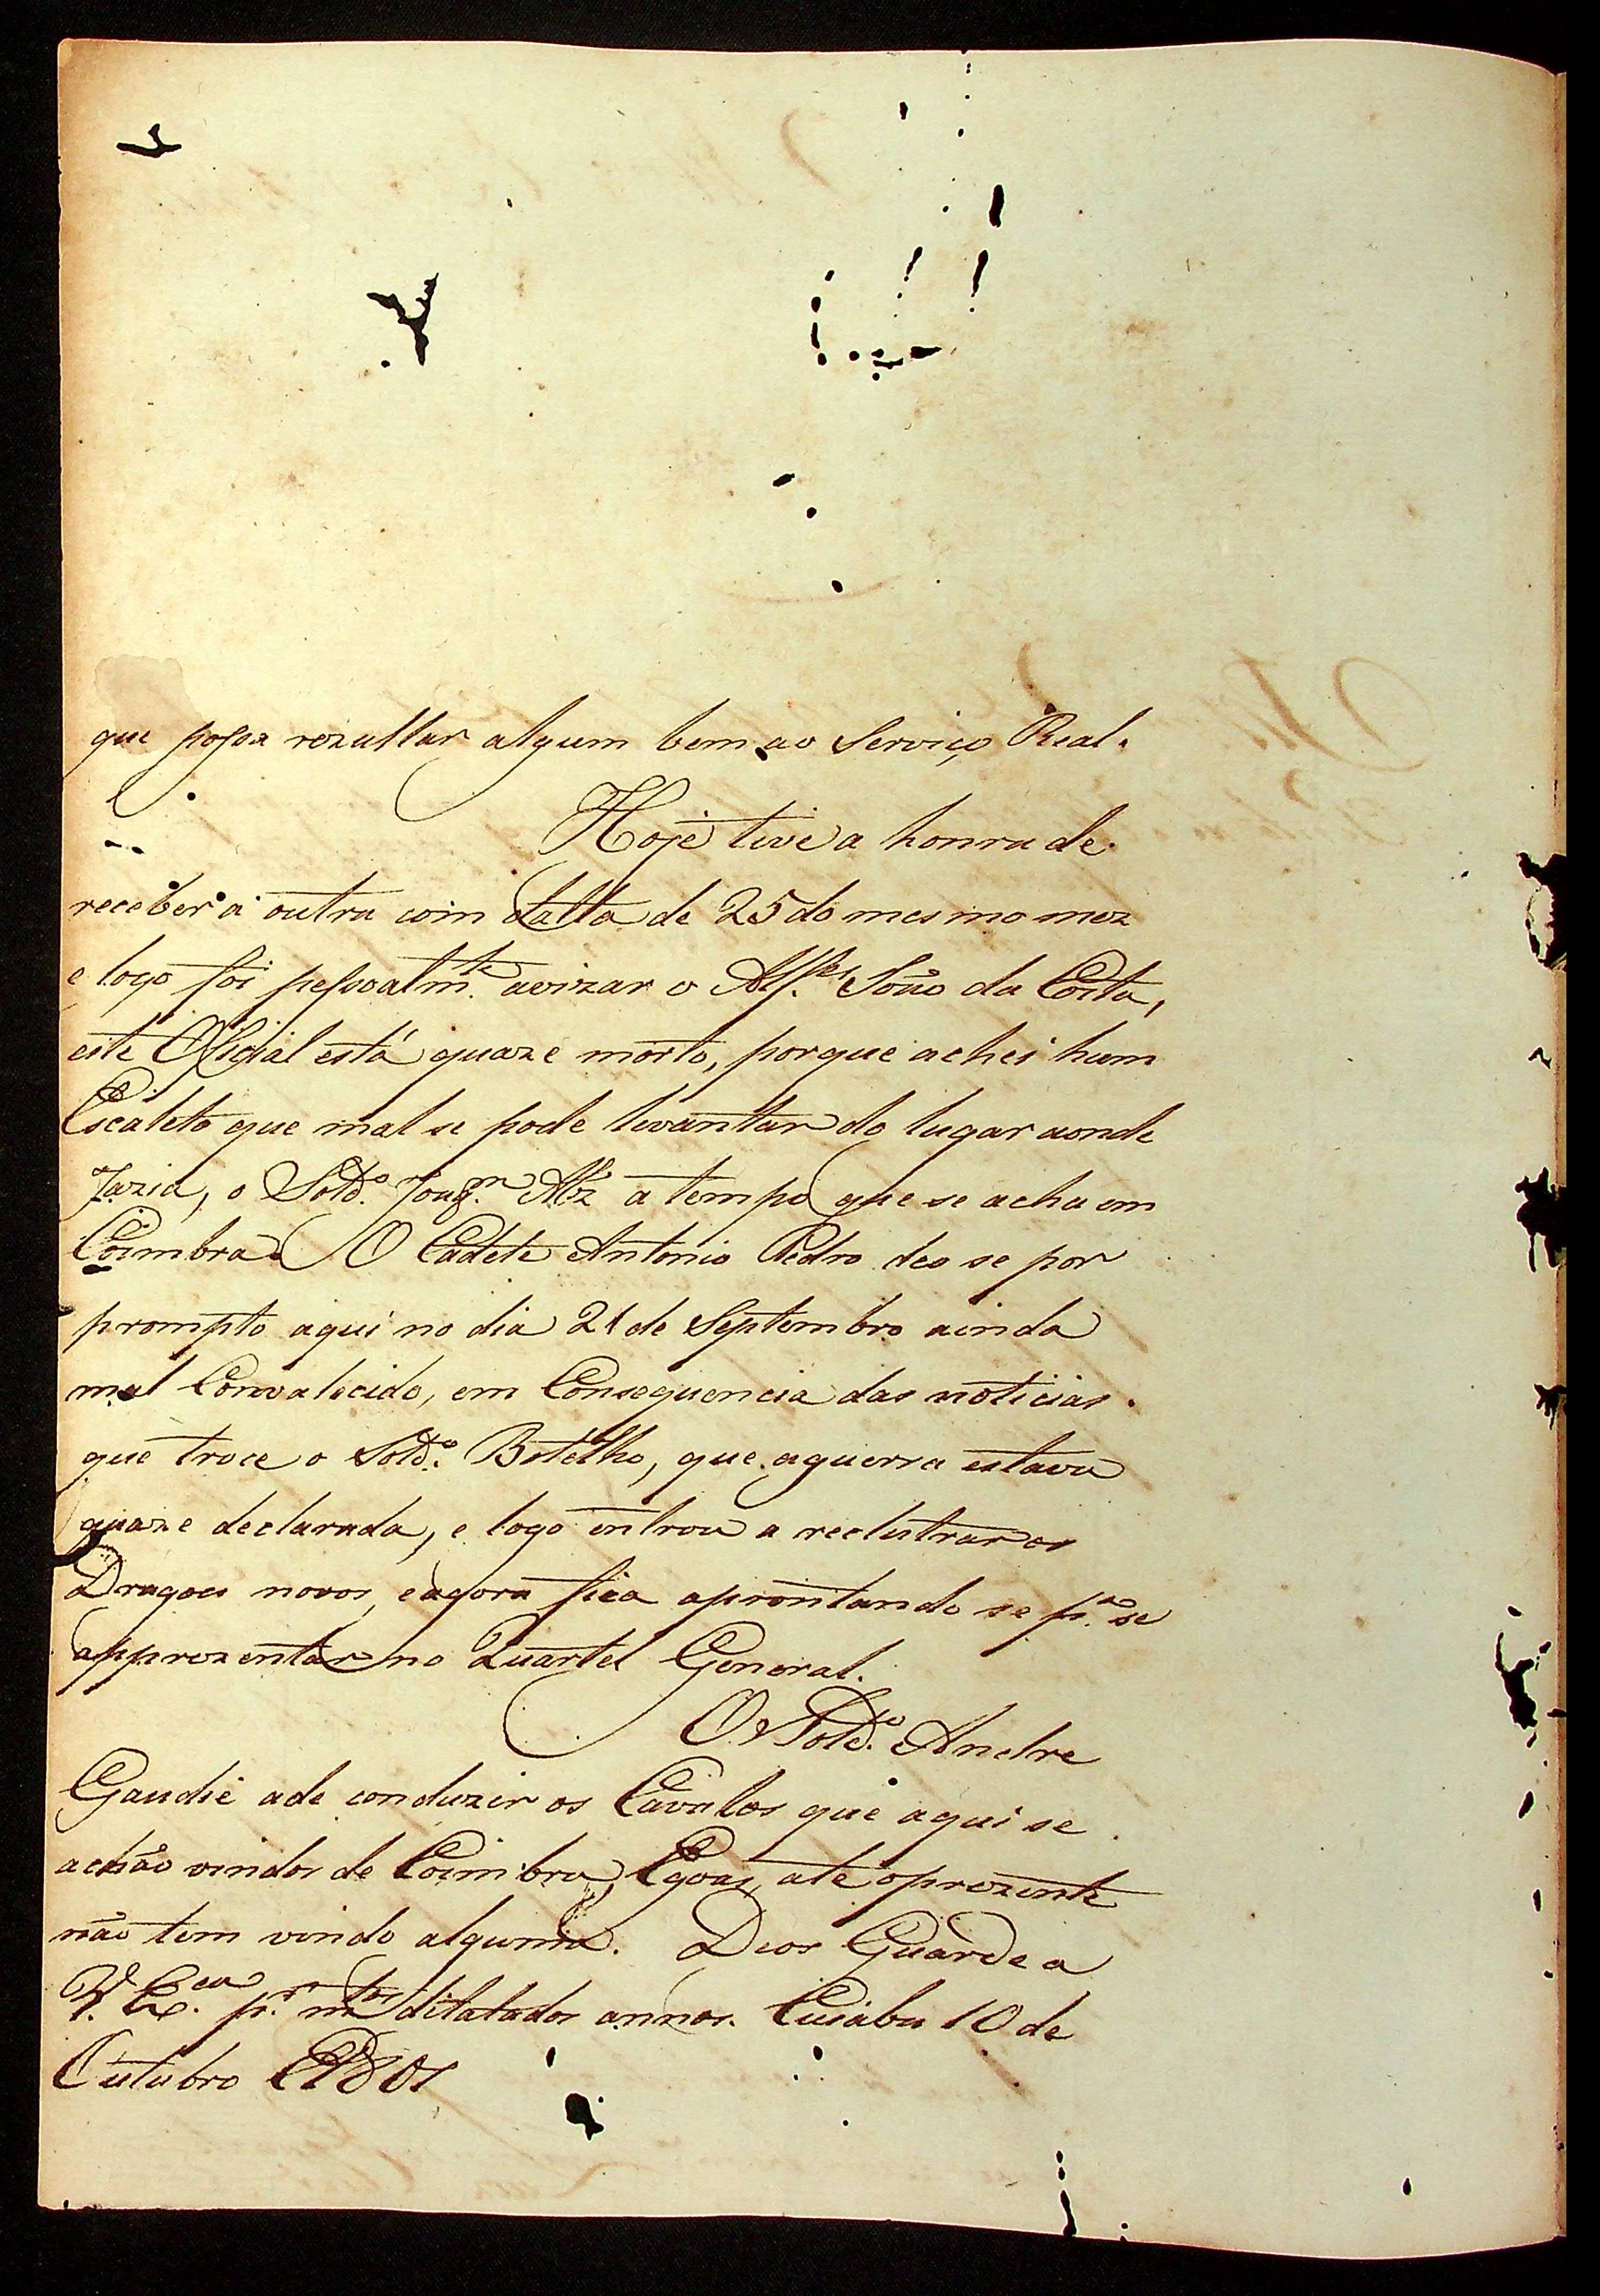 que possa rezultar algum bem ao Serviço Real.
Hoje tive a honra de
receber a outra com datta de 25 do mesmo mez
e logo foi pessoalm.te avizar o Alf.es João da Costa,
este Oficial está quaze morto, porque achei hum
Escaleto que mal se pode levantar do lugar aonde
Jazia, o Sold.o Joaq.m Alz a tempo que se acha em
Coimbra. O Cadete Antonio Pedro deo se por
prompto aqui no dia 21 de Septembro ainda
mal Convalecido, em Consequencia das noticias
que troce o Sold.o Botelho, que aguerra estava
quaze declarada, e logo entrou a reclutrar os
Dragoes novos, eagora fica aprontando se p.a se
apprezentar no Quartel General.
O Sold.o Andre
Gaudie ade conduzir os Cavalos que aqui se
achão vindos de Coimbra, Egoas, ate oprezente
não tem vindo alguma. Deos Guarde a
V. Ex.cia p.r m.tos dilatados annos. Cuiaba 10 de
Outubro 1801